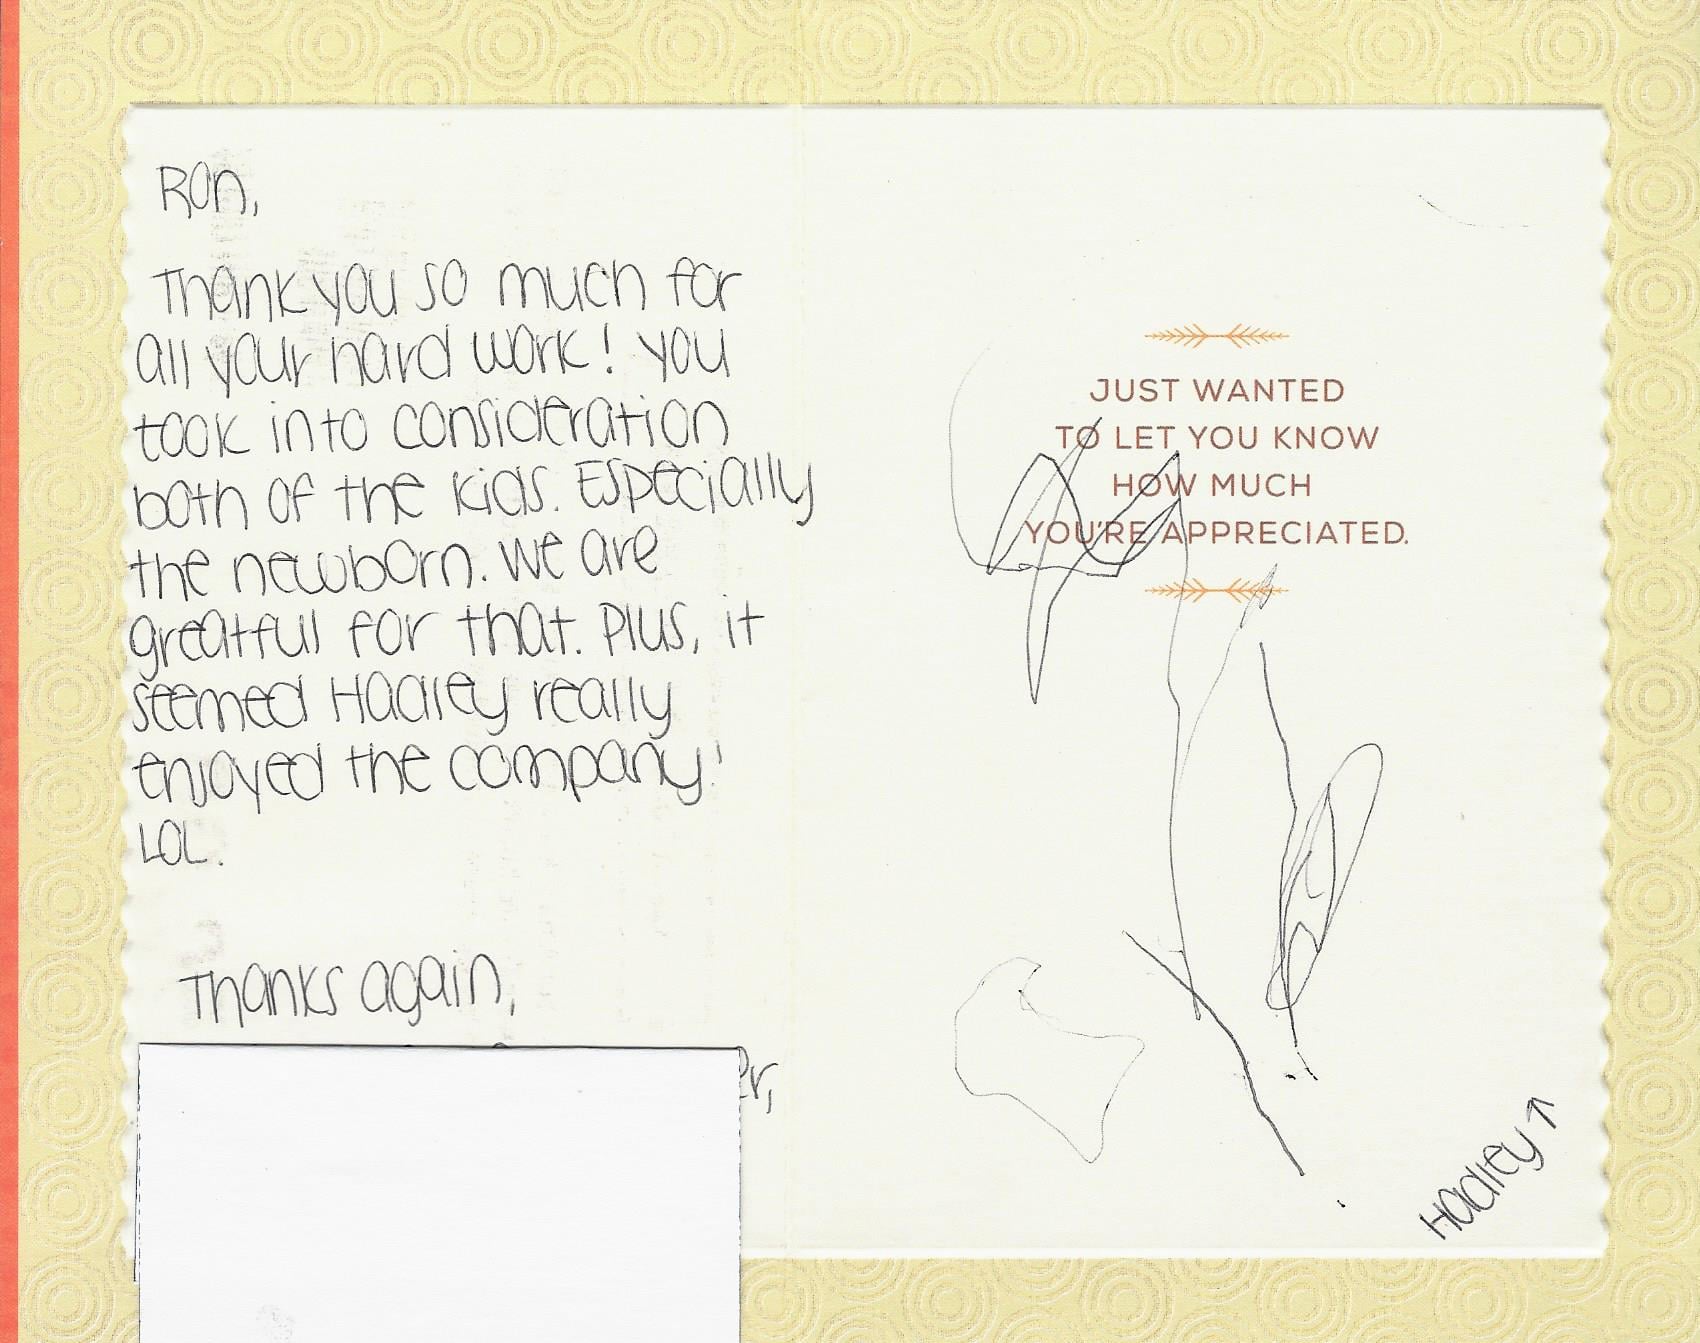 Ron,
Thank you so much for
all your hard work! You
took into consideration
both of the kids. Especially
the newborn. We are
greatful for that. Plus, it
seemed Hadley really
enjoyed the company!
LOL.
Thanks again,
er,
JUST WANTED
TO LET YOU KNOW
HOW MUCH
YOU'RE APPRECIATED.
Hadley ↑